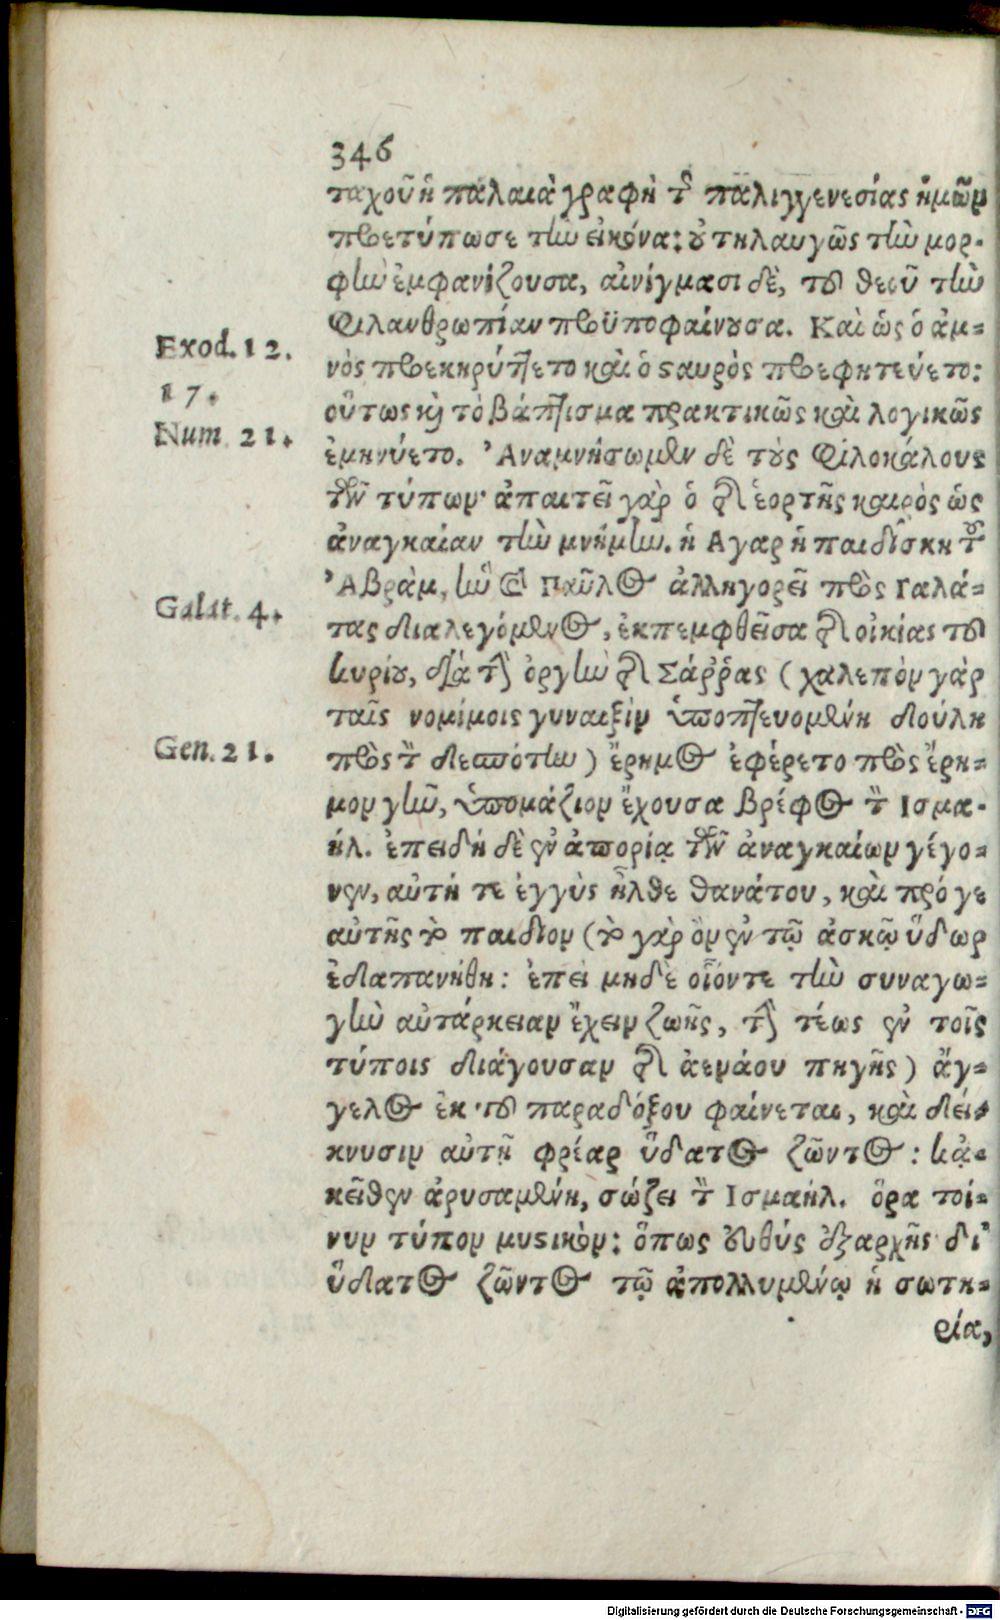 346
ταχοῦ ἡ παλαιὰ γραφὴ τῆς παλιγγενεσίας ἡμῶν
προετύπωσε τὴν εἰκόνα: οὐ τηλαυγῶς τὴν μορ-
φὴν ἐμφανίζουσα, αἰνίγμασι δὲ, τοῦ θεοῦ τὴν
φιλανθρωπίαν προϋποφαίνουσα. Καὶ ὡς ὁ ἀμ=
Exod. 12.
νὸς προεκηρύττετο καὶ ὁ σταυρὸς προεφητεύετο:
17.
οὕτως καὶ τὸ βάπτισμα πρακτικῶς καὶ λογικῶς
Num. 21.
ἐμηνύετο. Ἀναμνήσωμεν δὲ τοὺς φιλοκάλους
τῶν τύπων· ἀπαιτεῖ γὰρ ὁ τῆς ἑορτῆς καιρὸς ὡς
ἀναγκαίαν τὴν μνήμην. ἡ Αγαρ ἡ παιδίσκη τοῦ
Ἀβρὰμ, ἣν καὶ Παῦλος ἀλληγορεῖ πρὸς Γαλά=
Galat. 4.
τας διαλεγόμενος, ἐκπεμφθεῖσα τῆς οἰκίας τοῦ
κυρίου, διὰ τὴν ὀργὴν τῆς Σάῤῥας (χαλεπὸν γὰρ
ταῖς νομίμοις γυναιξὶν ὑποπτευομένη δούλη
Gen. 21.
πρὸς τὸν δεσπότην) ἔρημος ἐφέρετο πρὸς ἔρη=
μον γῆν, ὑπομάζιον ἔχουσα βρέφος τὸν Ισμα-
ήλ. ἐπειδὴ δὲ ἐν ἀπορίᾳ τῶν ἀναγκαίων γέγο=
νεν, αὐτή τε ἐγγὺς ἦλθε θανάτου, καὶ πρό γε
αὐτῆς τὸ παιδίον (τὸ γὰρ ὂν ἐν τῷ ἀσκῷ ὕδωρ
ἐδαπανήθη: ἐπεὶ μηδὲ οἷόντε τὴν συναγω=
γὴν αὐτάρκειαν ἔχειν ζωῆς, τὴν τέως ἐν τοῖς
τύποις διάγουσαν τῆς ἀεννάου πηγῆς) ἄγ=
γελος ἐκ τοῦ παραδόξου φαίνεται, καὶ δεί=
κνυσιν αὐτῇ φρέαρ ὕδατος ζῶντος: κἀ=
κεῖθεν ἀρυσαμένη, σώζει τὸν Ισμαήλ. ὅρα τοί=
νυν τύπον μυστικὸν: ὅπως εὐθύς ἐξαρχῆς δι'
ὕδατος ζῶντος τῷ ἀπολλυμένῳ ἡ σωτη=
ρία,
Digitalisierung gefördert durch die Deutsche Forschungsgemeinschaft - DFG